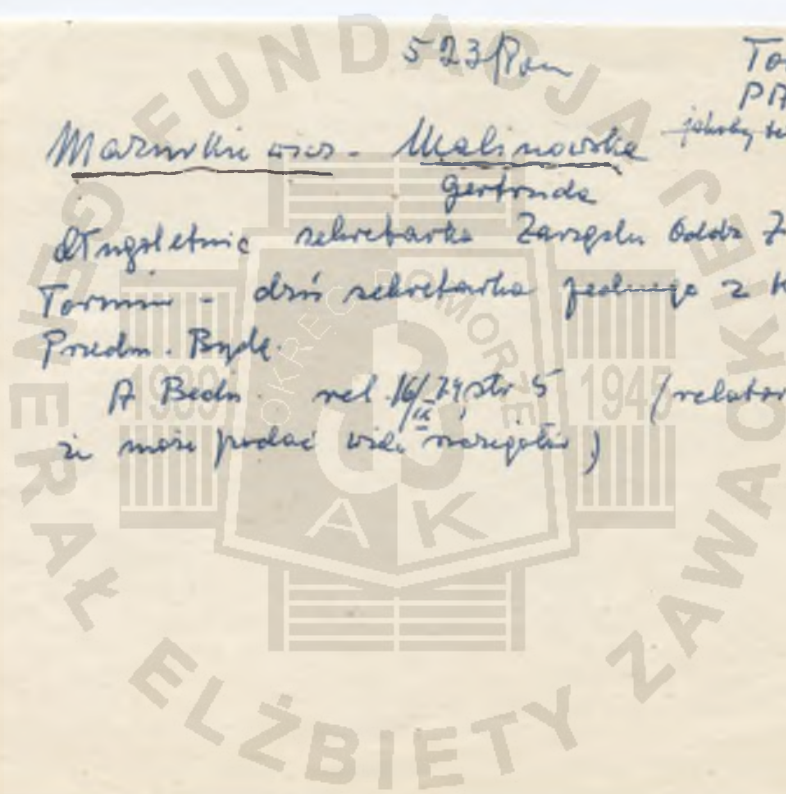 523/Pom
Tor
PA
Mazurkiewicz - Malinowska
Gertruda
długoletnia sekretarka Zarządu Oddz Z
Toruniu - dziś sekretarka jednego z
Przedm. Bydg.
A Bedn. rel. 16/IX 74, str 5 (relator
że może podać wiele szczegółów)
FUNDACJA GENERAŁ ELŻBIETY ZAWACKIEJ
OKRĘG POMORZE
1939 1945
AK